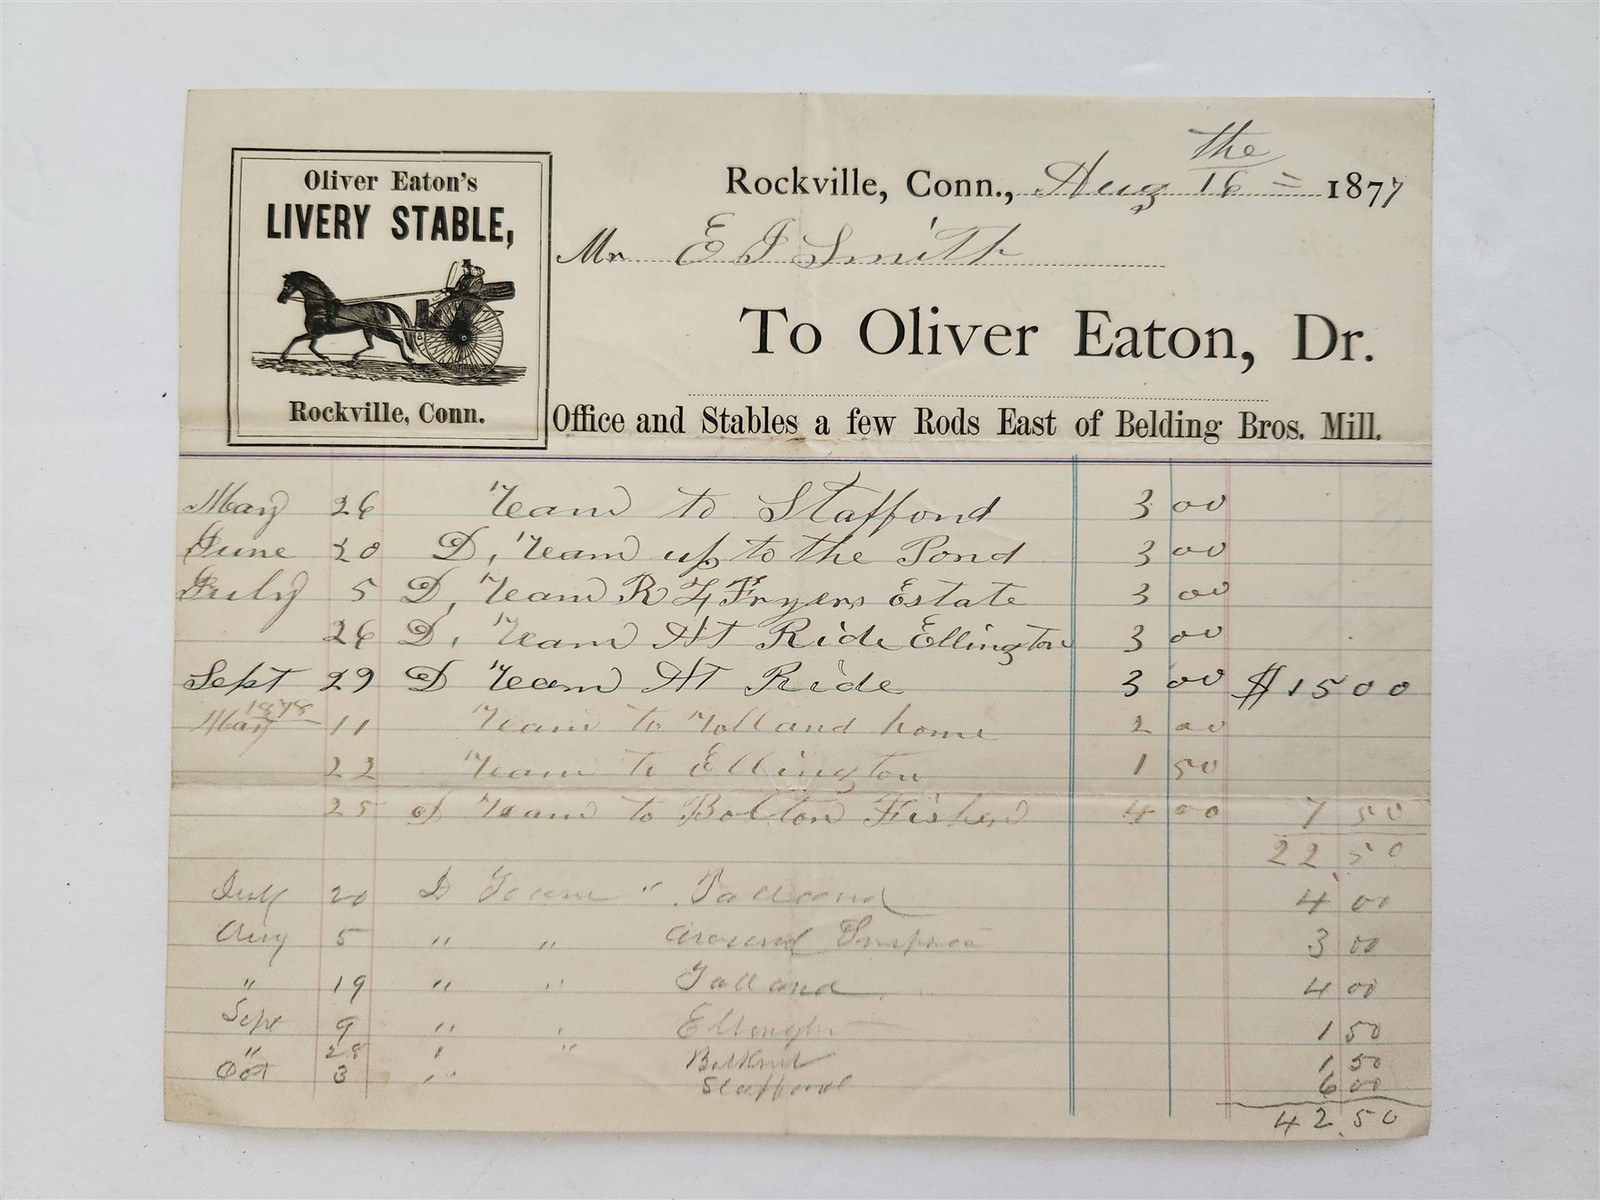 Oliver Eaton's
LIVERY STABLE,
Rockville, Conn.
Rockville, Conn., Aug 16 the = 1877
Mr E J Smith
To Oliver Eaton, Dr.
Office and Stables a few Rods East of Belding Bros. Mill.
May 26 Team to Stafford 3 00
June 20 D, Team up to the Pond 3 00
July 5 D, Team R Fryers Estate 3 00
26 D, Team At Ride Ellington 3 00
Sept 29 D Team At Ride 3 00 $15 00
1878
May 11 Team to Tolland home 2 00
22 Team to Ellington 1 50
25 Team to Bolton 4 00 7 50
22 50
July 20 D Team " Talland 4 00
Aug 5 " " around 3 00
" 19 " " Talland 4 00
Sept 9 " " 1 50
" 28 " " 1 50
Oct 3 " Stafford 6 00
42.50